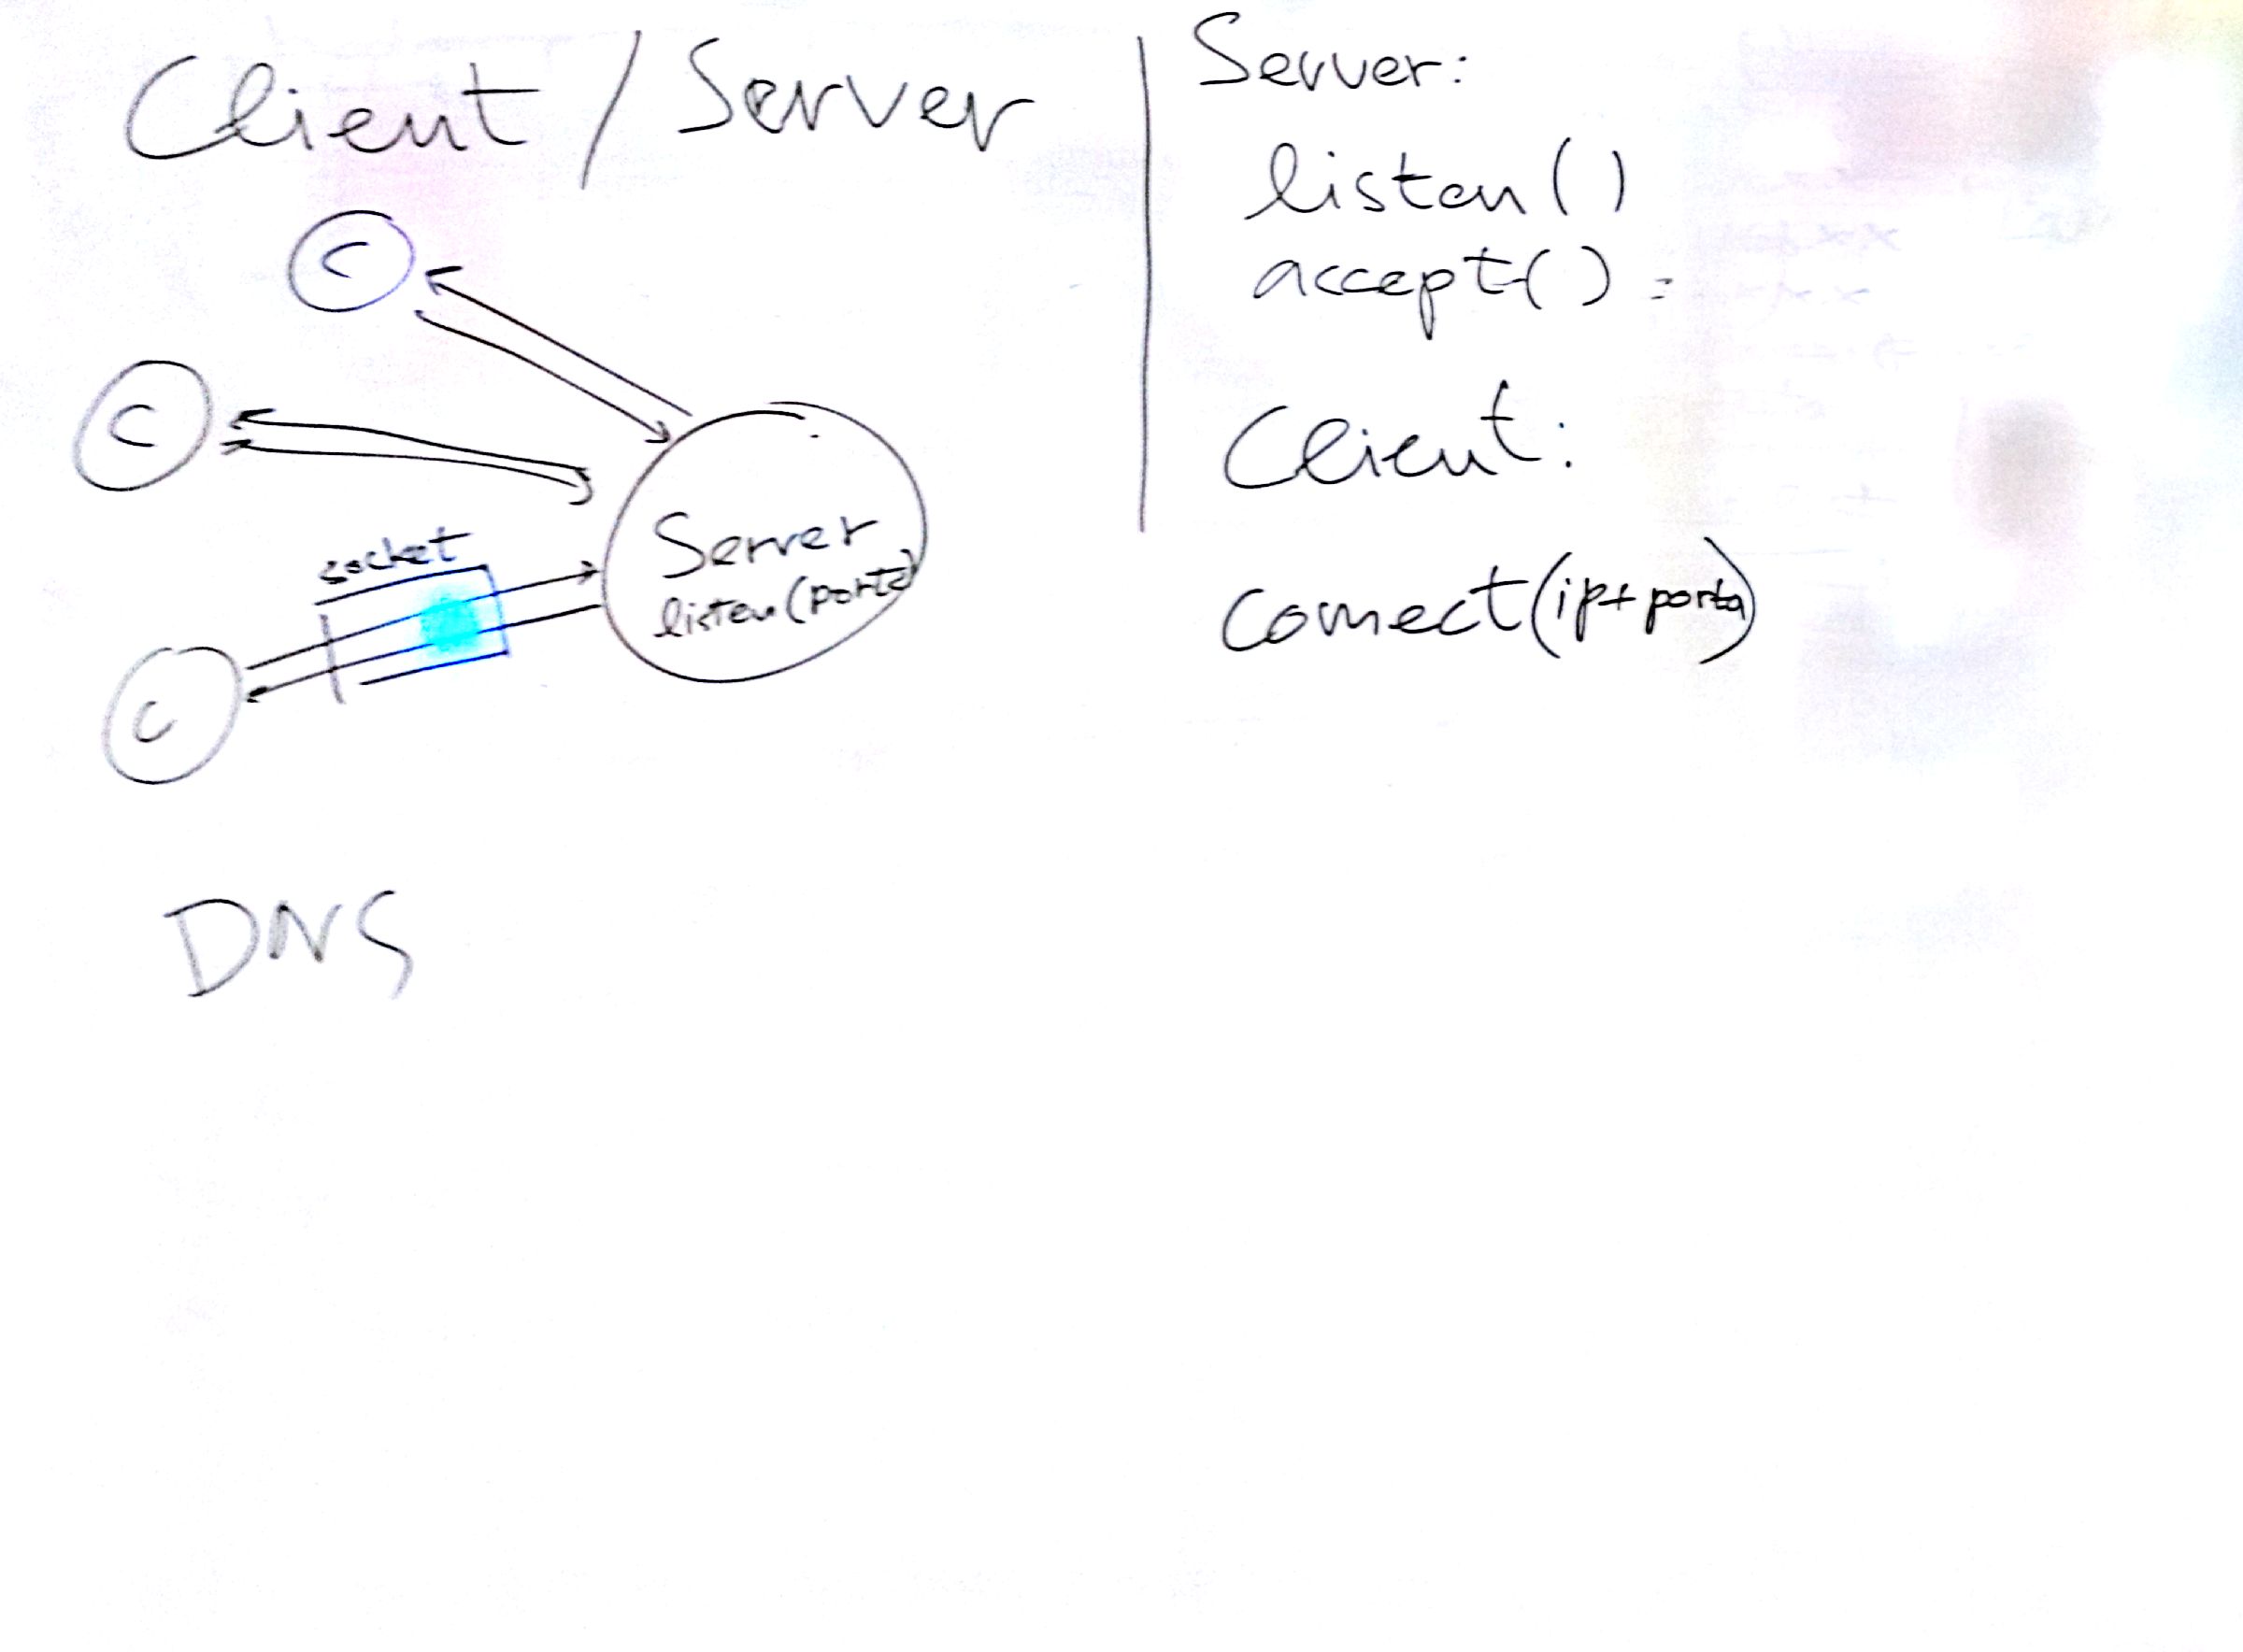 Client / Server
C
C
socket
Server
listen(porta)
C
DNS
Server:
listen()
accept()
Client:
connect(ip+porta)